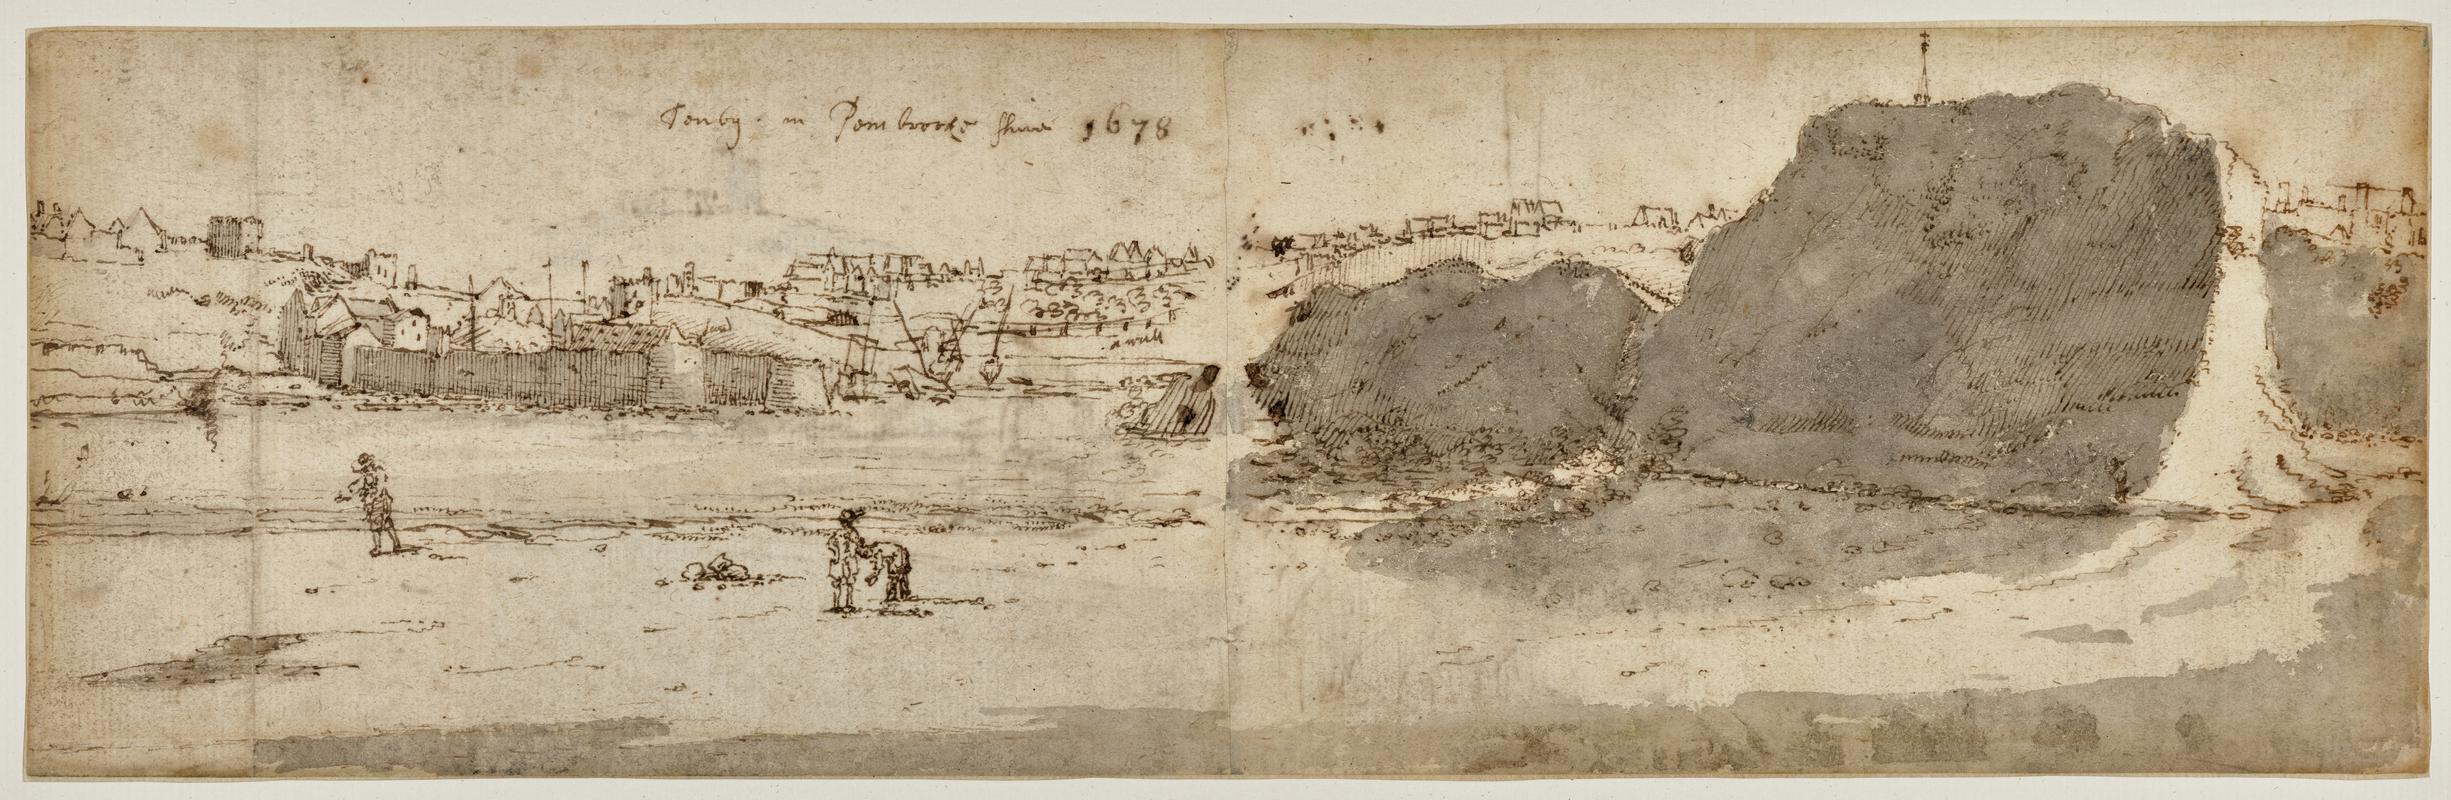 Tenby. in Pembrocke shire 1678
a wall